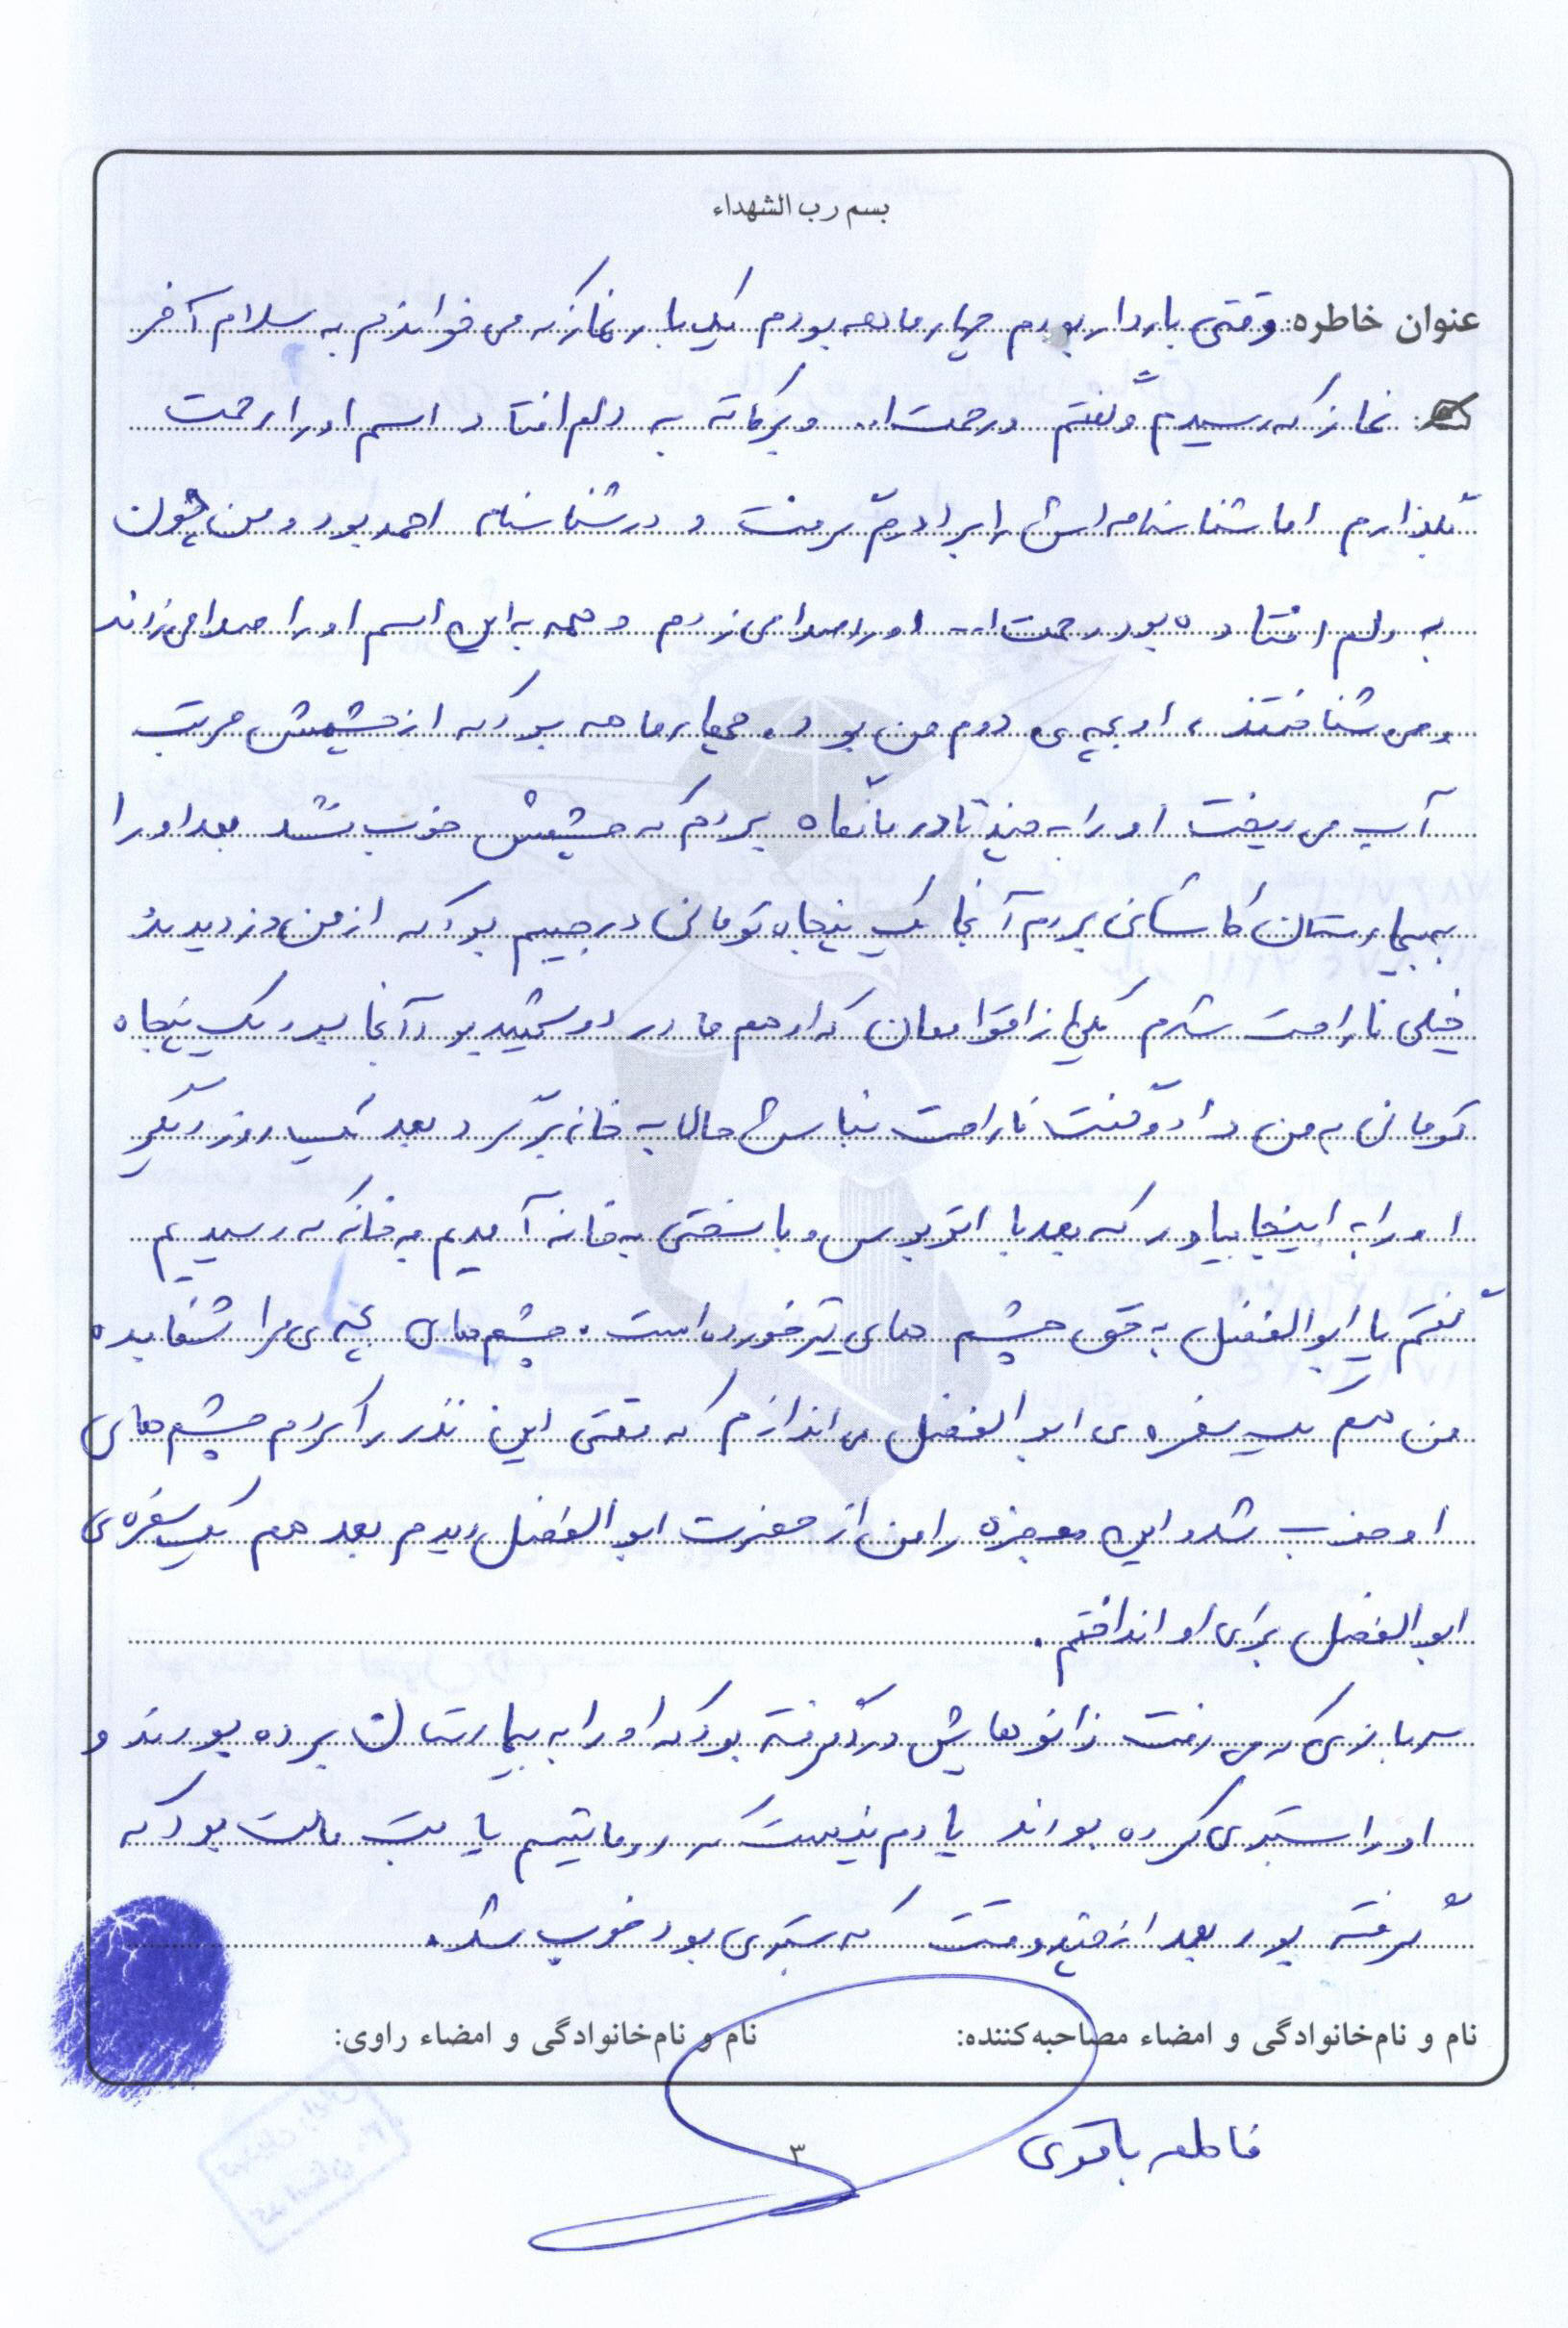 بسم رب الشهداء
عنوان خاطره: وقتی باردار بودم چهار ماهه بودم یک بار نماز که می خواندم به سلام آخر
نماز که رسیدم و گفتم ورحمت ا... وبرکاته به دلم افتاد اسم او را رحمت
بگذارم اما شناسنامه اش را برادرم گرفت و در شناسنامه احمد بود و من چون
به دلم افتاده بود رحمت ا... او را صدا می زدم و همه به این اسم او را صدا می زدند
و می شناختند، او بچه ی دوم من بود. چهار ماهه بود که از چشمش مرتب
آب می ریخت او را به چند تا درمانگاه بردم که چشمش خوب نشد بعد او را
به بیمارستان کاشانی بردم آنجا یک پنجاه تومانی در جیبم بود که از من دزدیدند
خیلی ناراحت شدم یکی از اقواممان که او هم مادر دو شهید بود آنجا بود یک پنجاه
تومانی به من داد و گفت ناراحت نباش حالا به خانه برگرد و بعد یک روز دیگر
او را به اینجا بیاور که بعد با اتوبوس و با سختی به خانه آمدیم به خانه که رسیدیم
گفتم یا ابوالفضل به حق چشم های تیر خورده است. چشم های بچه ی مرا شفا بده
من هم یک سفره ی ابوالفضل می اندازم که وقتی این نذر را کردم چشم های
او خوب شد و این معجزه را من از حضرت ابوالفضل دیدم بعد هم یک سفره ی
ابوالفضل برای او انداختم.
سربازی که می رفت زانوهایش درد گرفته بود که او را به بیمارستان برده بودند و
او را بستری کرده بودند یادم نیست که روماتیسم یا تب مالت بود که
گرفته بود بعد از چند وقت که بستری بود خوب شد.
نام و نام‌خانوادگی و امضاء مصاحبه‌کننده: نام و نام‌خانوادگی و امضاء راوی:
فاطمه باقری
۳